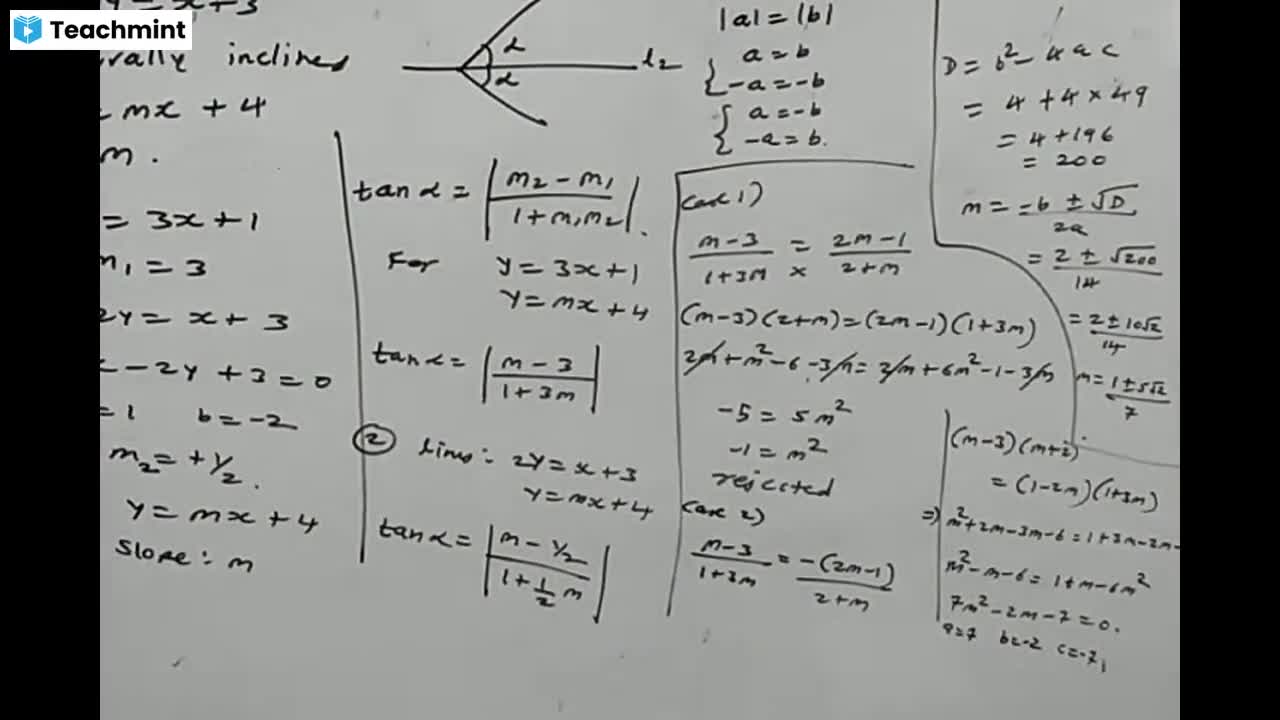 Teachmint
y = x+3
rally inclined
= mx + 4
m .
= 3x+1
m₁ = 3
2y = x + 3
x - 2y + 3 = 0
= 1 b = -2
m₂ = +1/2 .
y = mx + 4
Slope : m
α
α
l₂
tan α = | m₂ - m₁ / 1 + m₁m₂ | .
For y = 3x+1
y = mx + 4
tan α = | m - 3 / 1 + 3m |
② Lines : 2y = x + 3
y = mx + 4
tan α = | m - 1/2 / 1 + 1/2 m |
|a| = |b|
{ a = b
-a = -b
{ a = -b
-a = b .
Case 1)
m-3 / 1+3m × = 2m-1 / 2+m
(m-3)(2+m) = (2m-1)(1+3m)
2m + m² - 6 - 3m = 2m + 6m² - 1 - 3m
-5 = 5m²
-1 = m²
rejected
Case 2)
m-3 / 1+3m = -(2m-1) / 2+m
D = b² - 4ac
= 4 + 4 × 49
= 4 + 196
= 200
m = -b ± √D / 2a
= 2 ± √200 / 14
= 2 ± 10√2 / 14
m = 1 ± 5√2 / 7
(m-3)(m+2)
= (1-2m)(1+3m)
⇒ m² + 2m - 3m - 6 = 1 + 3m - 2m -
m² - m - 6 = 1 + m - 6m²
7m² - 2m - 7 = 0 .
a=7 b=-2 c=-7,